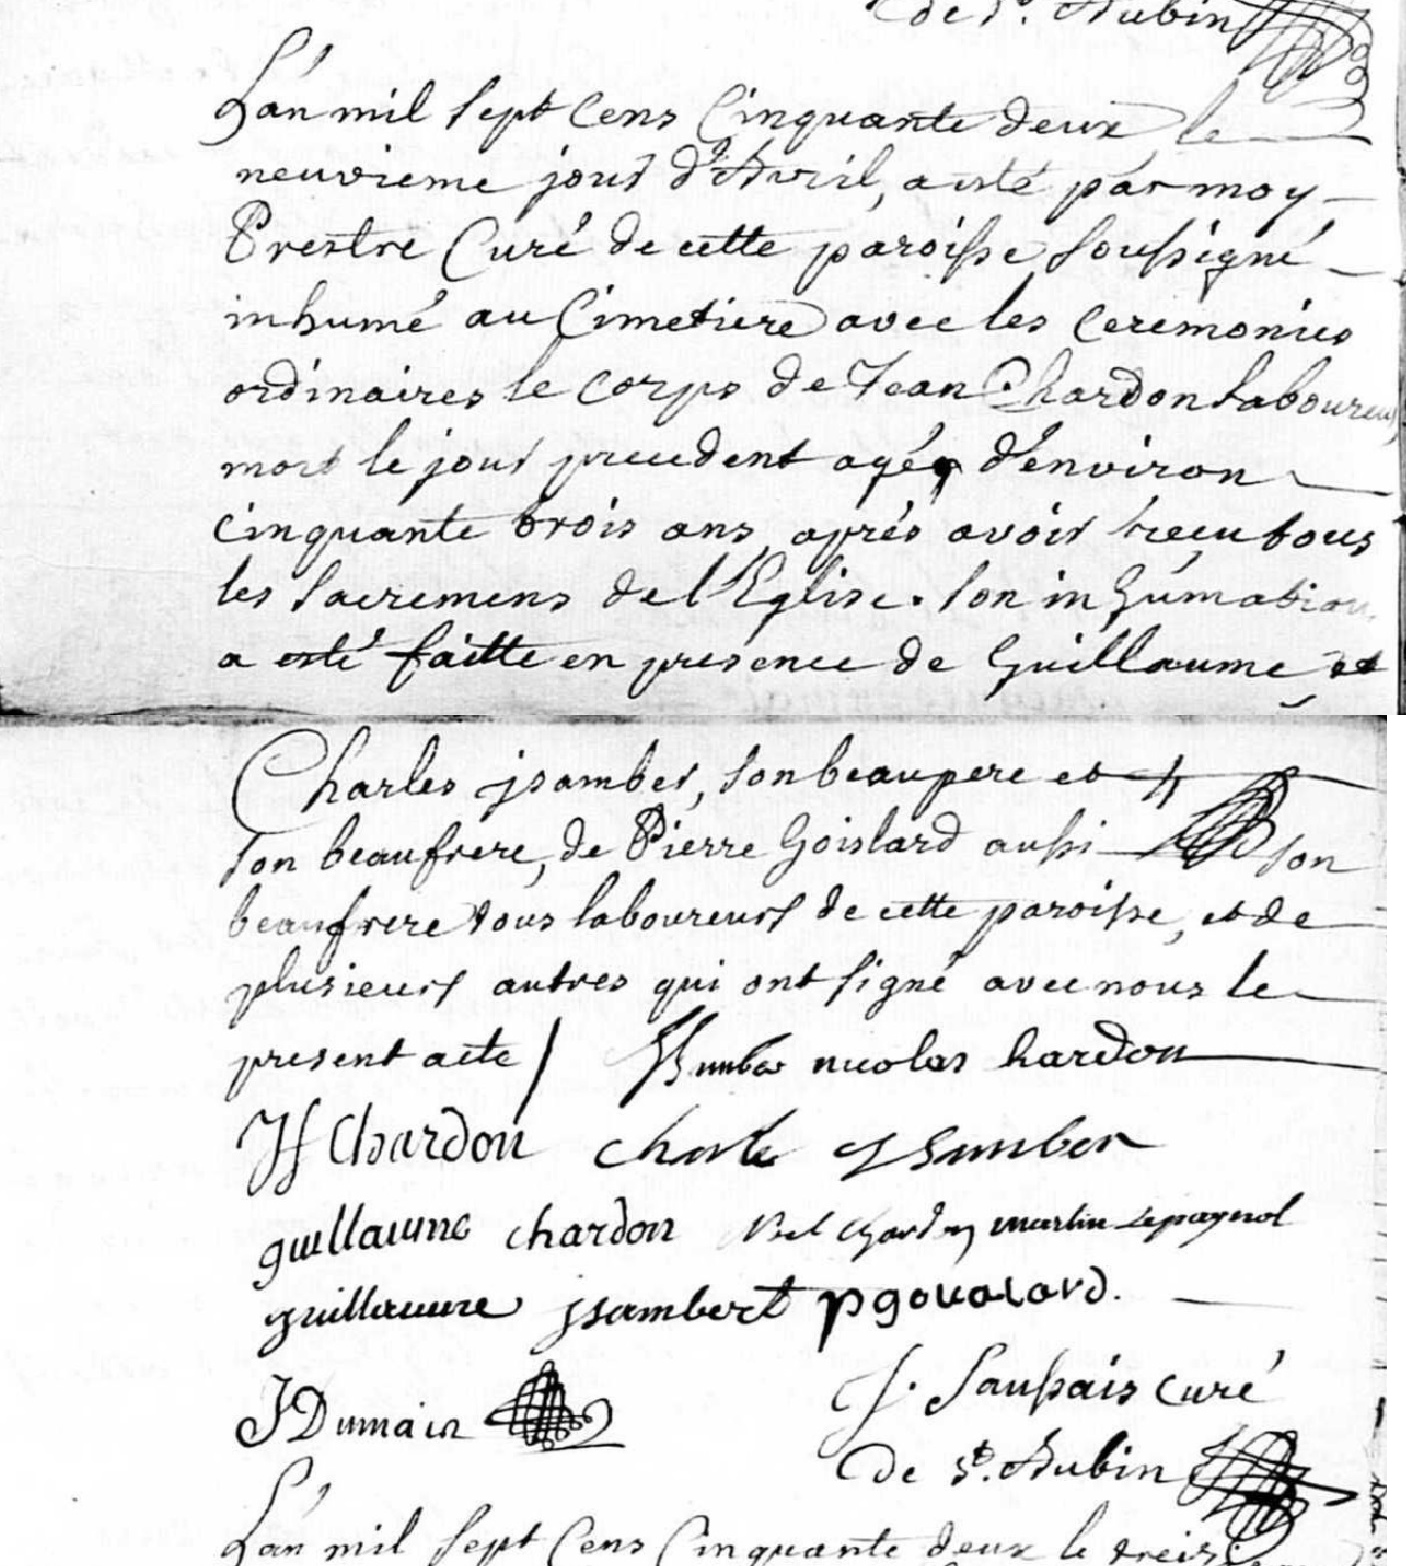 de St. Aubin
L'an mil sept Cens Cinquante deux le
neuvieme jour d'Avril, a esté par moy
Prestre Curé de cette paroisse soussigné
inhumé au Cimetiere avec les ceremonies
ordinaires le corps de Jean Chardon laboureur,
mort le jour precedent agé d'environ
cinquante trois ans, aprés avoir receu tous
les sacremens de l'Eglise. son inhumation
a esté faitte en presence de Guillaume et
Charles jsamber, son beaupere et
son beaufrere, de Pierre Goislard aussi son
beaufrere tous laboureurs de cette paroisse, et de
plusieurs autres qui ont signé avec nous le
present acte / nicolas hardon
Chardon charle ysamber
guillaume chardon martin Lepagnol
guillaume jsambert pgoualard.
J. Saussais curé
JDumain
de St. Aubin
L'an mil sept Cens Cinquante deux le treis